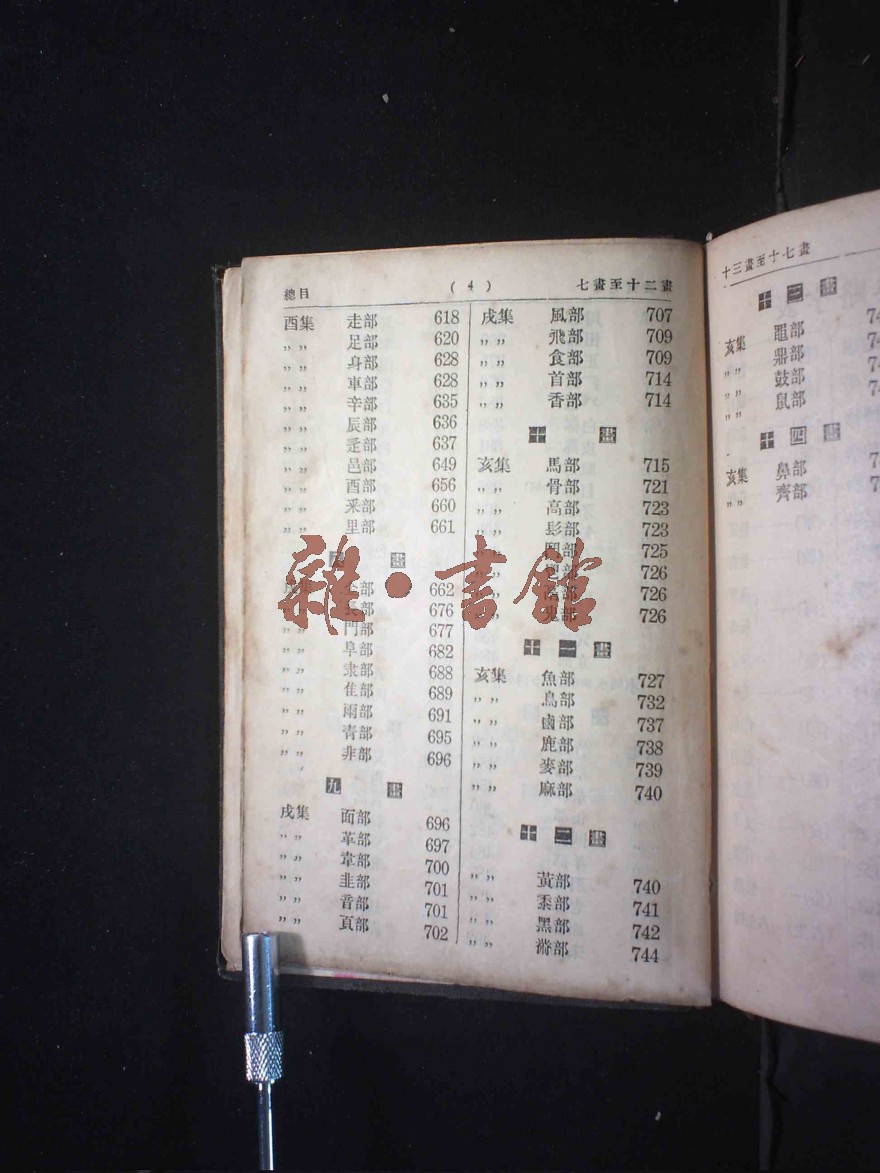 總目 (4) 七畫至十二畫
酉集 走部 618
〃〃 足部 620
〃〃 身部 628
〃〃 車部 628
〃〃 辛部 635
〃〃 辰部 636
〃〃 辵部 637
〃〃 邑部 649
〃〃 酉部 656
〃〃 釆部 660
〃〃 里部 661
畫
部 662
長部 676
〃〃 門部 677
〃〃 阜部 682
〃〃 隶部 688
〃〃 隹部 689
〃〃 雨部 691
〃〃 青部 695
〃〃 非部 696
九畫
戌集 面部 696
〃〃 革部 697
〃〃 韋部 700
〃〃 韭部 701
〃〃 音部 701
〃〃 頁部 702
戌集 風部 707
〃〃 飛部 709
〃〃 食部 709
〃〃 首部 714
〃〃 香部 714
十畫
亥集 馬部 715
〃〃 骨部 721
〃〃 高部 723
〃〃 髟部 723
〃〃 鬥部 725
〃〃 部 726
〃〃 部 726
〃〃 鬼部 726
十一畫
亥集 魚部 727
〃〃 鳥部 732
〃〃 鹵部 737
〃〃 鹿部 738
〃〃 麥部 739
〃〃 麻部 740
十二畫
〃〃 黃部 740
〃〃 黍部 741
〃〃 黑部 742
〃〃 黹部 744
雜·書館
十三畫至十七畫
十三畫
亥集 黽部
〃〃 鼎部
〃〃 鼓部
〃〃 鼠部
十四畫
亥集 鼻部
〃〃 齊部